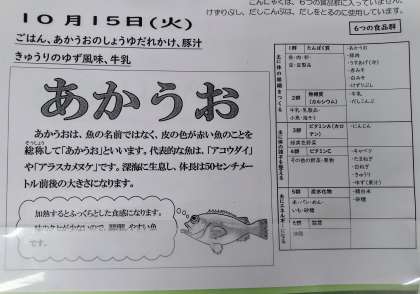 こんにゃくは、6つの食品群に入っていません。
けずりぶし、だしこんぶは、だしをとるのに使用しています。
10月15日(火)
ごはん、あかうおのしょうゆだれかけ、豚汁
きゅうりのゆず風味、牛乳
あかうお
あかうおは、魚の名前ではなく、皮の色が赤い魚のことを
そうしょう
総称して「あかうお」といいます。代表的な魚は、「アコウダイ」
や「アラスカメヌケ」です。深海に生息し、体長は50センチメー
トル前後の大きさになります。
加熱するとふっくらとした食感になります。
味のクセが少ないので、
やすい魚
です。
6つの食品群
1群 たんぱく質
魚・肉・卵・
豆・豆製品
・あかうお
・豚肉
・うすあげ(油)
・赤みそ
・白みそ
・けずりぶし
2群 無機質
(カルシウム)
牛乳・乳製品・
小魚・海そう
・牛乳
・だしこんぶ
3群 ビタミンA(カロ
テン)
緑黄色野菜
・にんじん
4群 ビタミンC
その他の野菜・果物
・キャベツ
・たまねぎ
・白ねぎ
・きゅうり
・ゆず(果汁)
5群 炭水化物
米・パン・めん・
いも・砂糖
・精白米
・砂糖
6群 脂質